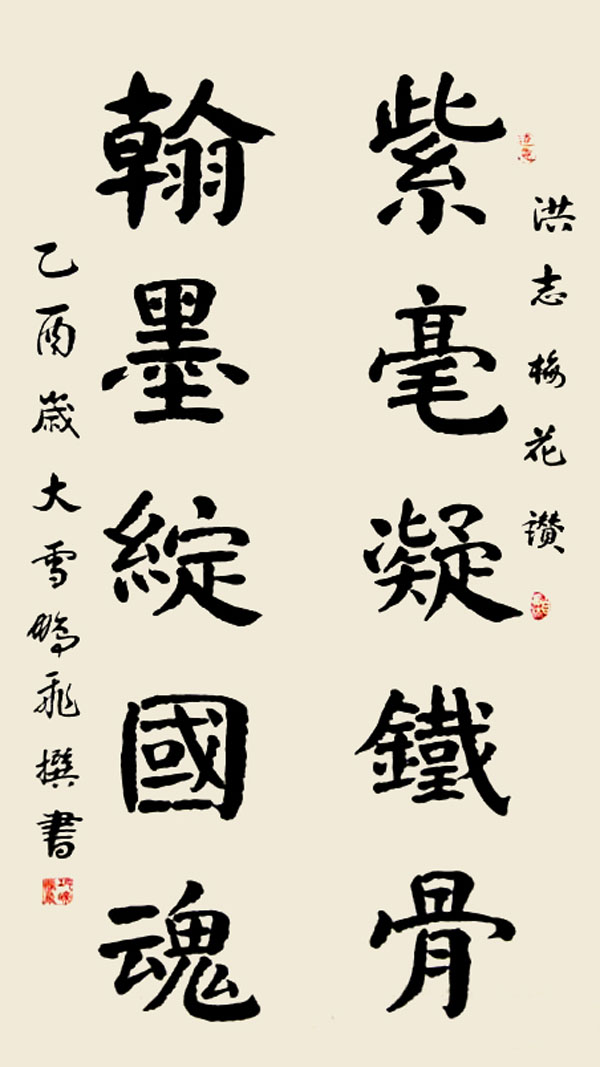 洪志梅花讚
紫毫凝鐵骨
翰墨綻國魂
乙酉歲大雪鵬飛撰書